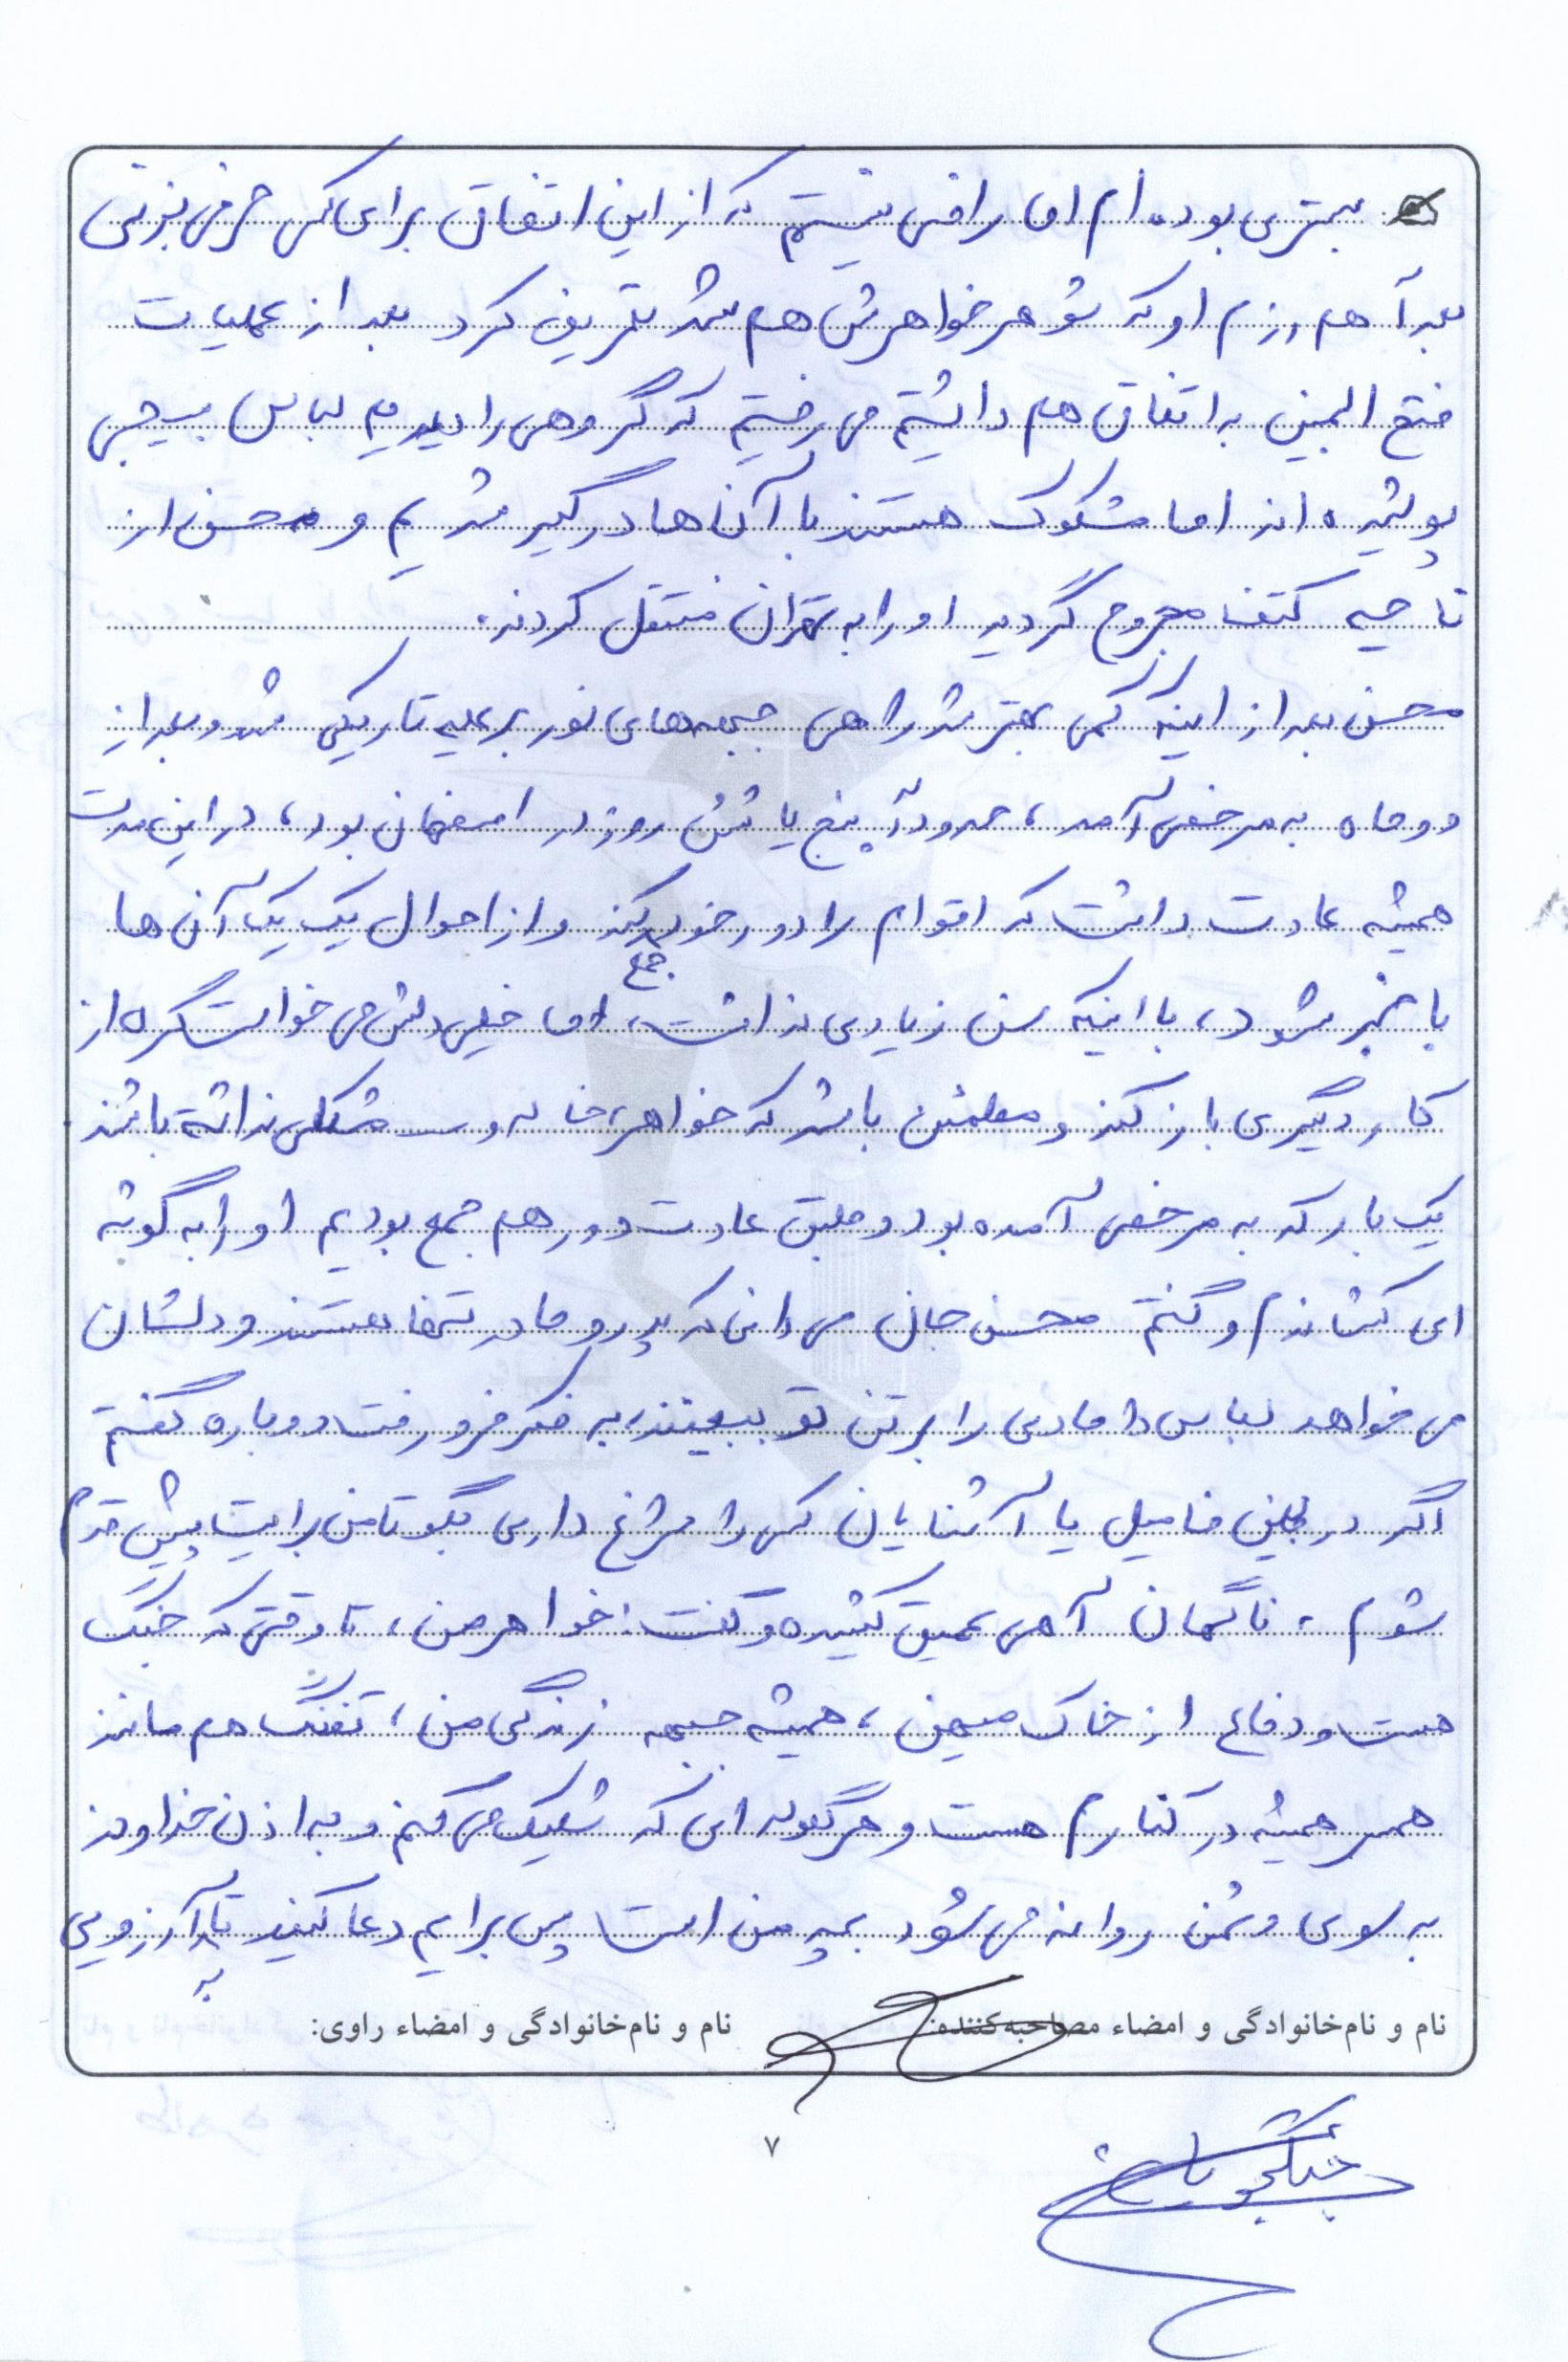 بستری بوده ام اما راضی نیستم که از این اتفاق برای کسی حرفی بزنی
بعداً هم رزم او که شوهر خواهرش هم شد تعریف کرد بعد از عملیات
فتح المبین به اتفاق هم داشتیم می رفتیم که گروهی را دیدیم لباس بسیجی
پوشیده اند اما مشکوک هستند با آن ها درگیر شدیم و محسن از
ناحیه کتف مجروح گردید او را به تهران منتقل کردند.
محسن بعد از اینکه کمی بهتر شد راهی جبهه های نور بر علیه تاریکی شد و بعد از
دو ماه به مرخصی آمد، حدوداً پنج یا شش روز در اصفهان بود، در این مدت
همیشه عادت داشت که اقوام را دور خود جمع کند و از احوال یک یک آن ها
با خبر شود، با اینکه سن زیادی نداشت، اما خیلی دلش می خواست گره از
کار دیگری باز کند و مطمئن باشد که خواهر، خاله و مشکلی نداشته باشند
یک بار که به مرخصی آمده بود و طبق عادت دور هم جمع بودیم او را به گوشه
ای کشاندم و گفتم محسن جان می دانی که پدر و مادر تنها هستند و دلشان
می خواهد لباس دامادی را بر تن تو ببینند، به فکر فرو رفت دوباره گفتم
اگر در بین فامیل یا آشنایان کسی را سراغ داری بگو تا من برایت پیش قدم
شوم، ناگهان آهی عمیق کشیده و گفت: خواهر من، تا وقتی که جنگ
هست و دفاع از خاک میهن، همیشه جبهه زندگی من، تفنگ هم مانند
همسر همیشه در کنارم هست و هر گلوله ای که شلیک می کنم و به اذن خداوند
به سوی دشمن روانه می شود بچه من است پس برایم دعا کنید تا به آرزویی
نام و نام‌خانوادگی و امضاء مصاحبه‌کننده: نام و نام‌خانوادگی و امضاء راوی:
۷